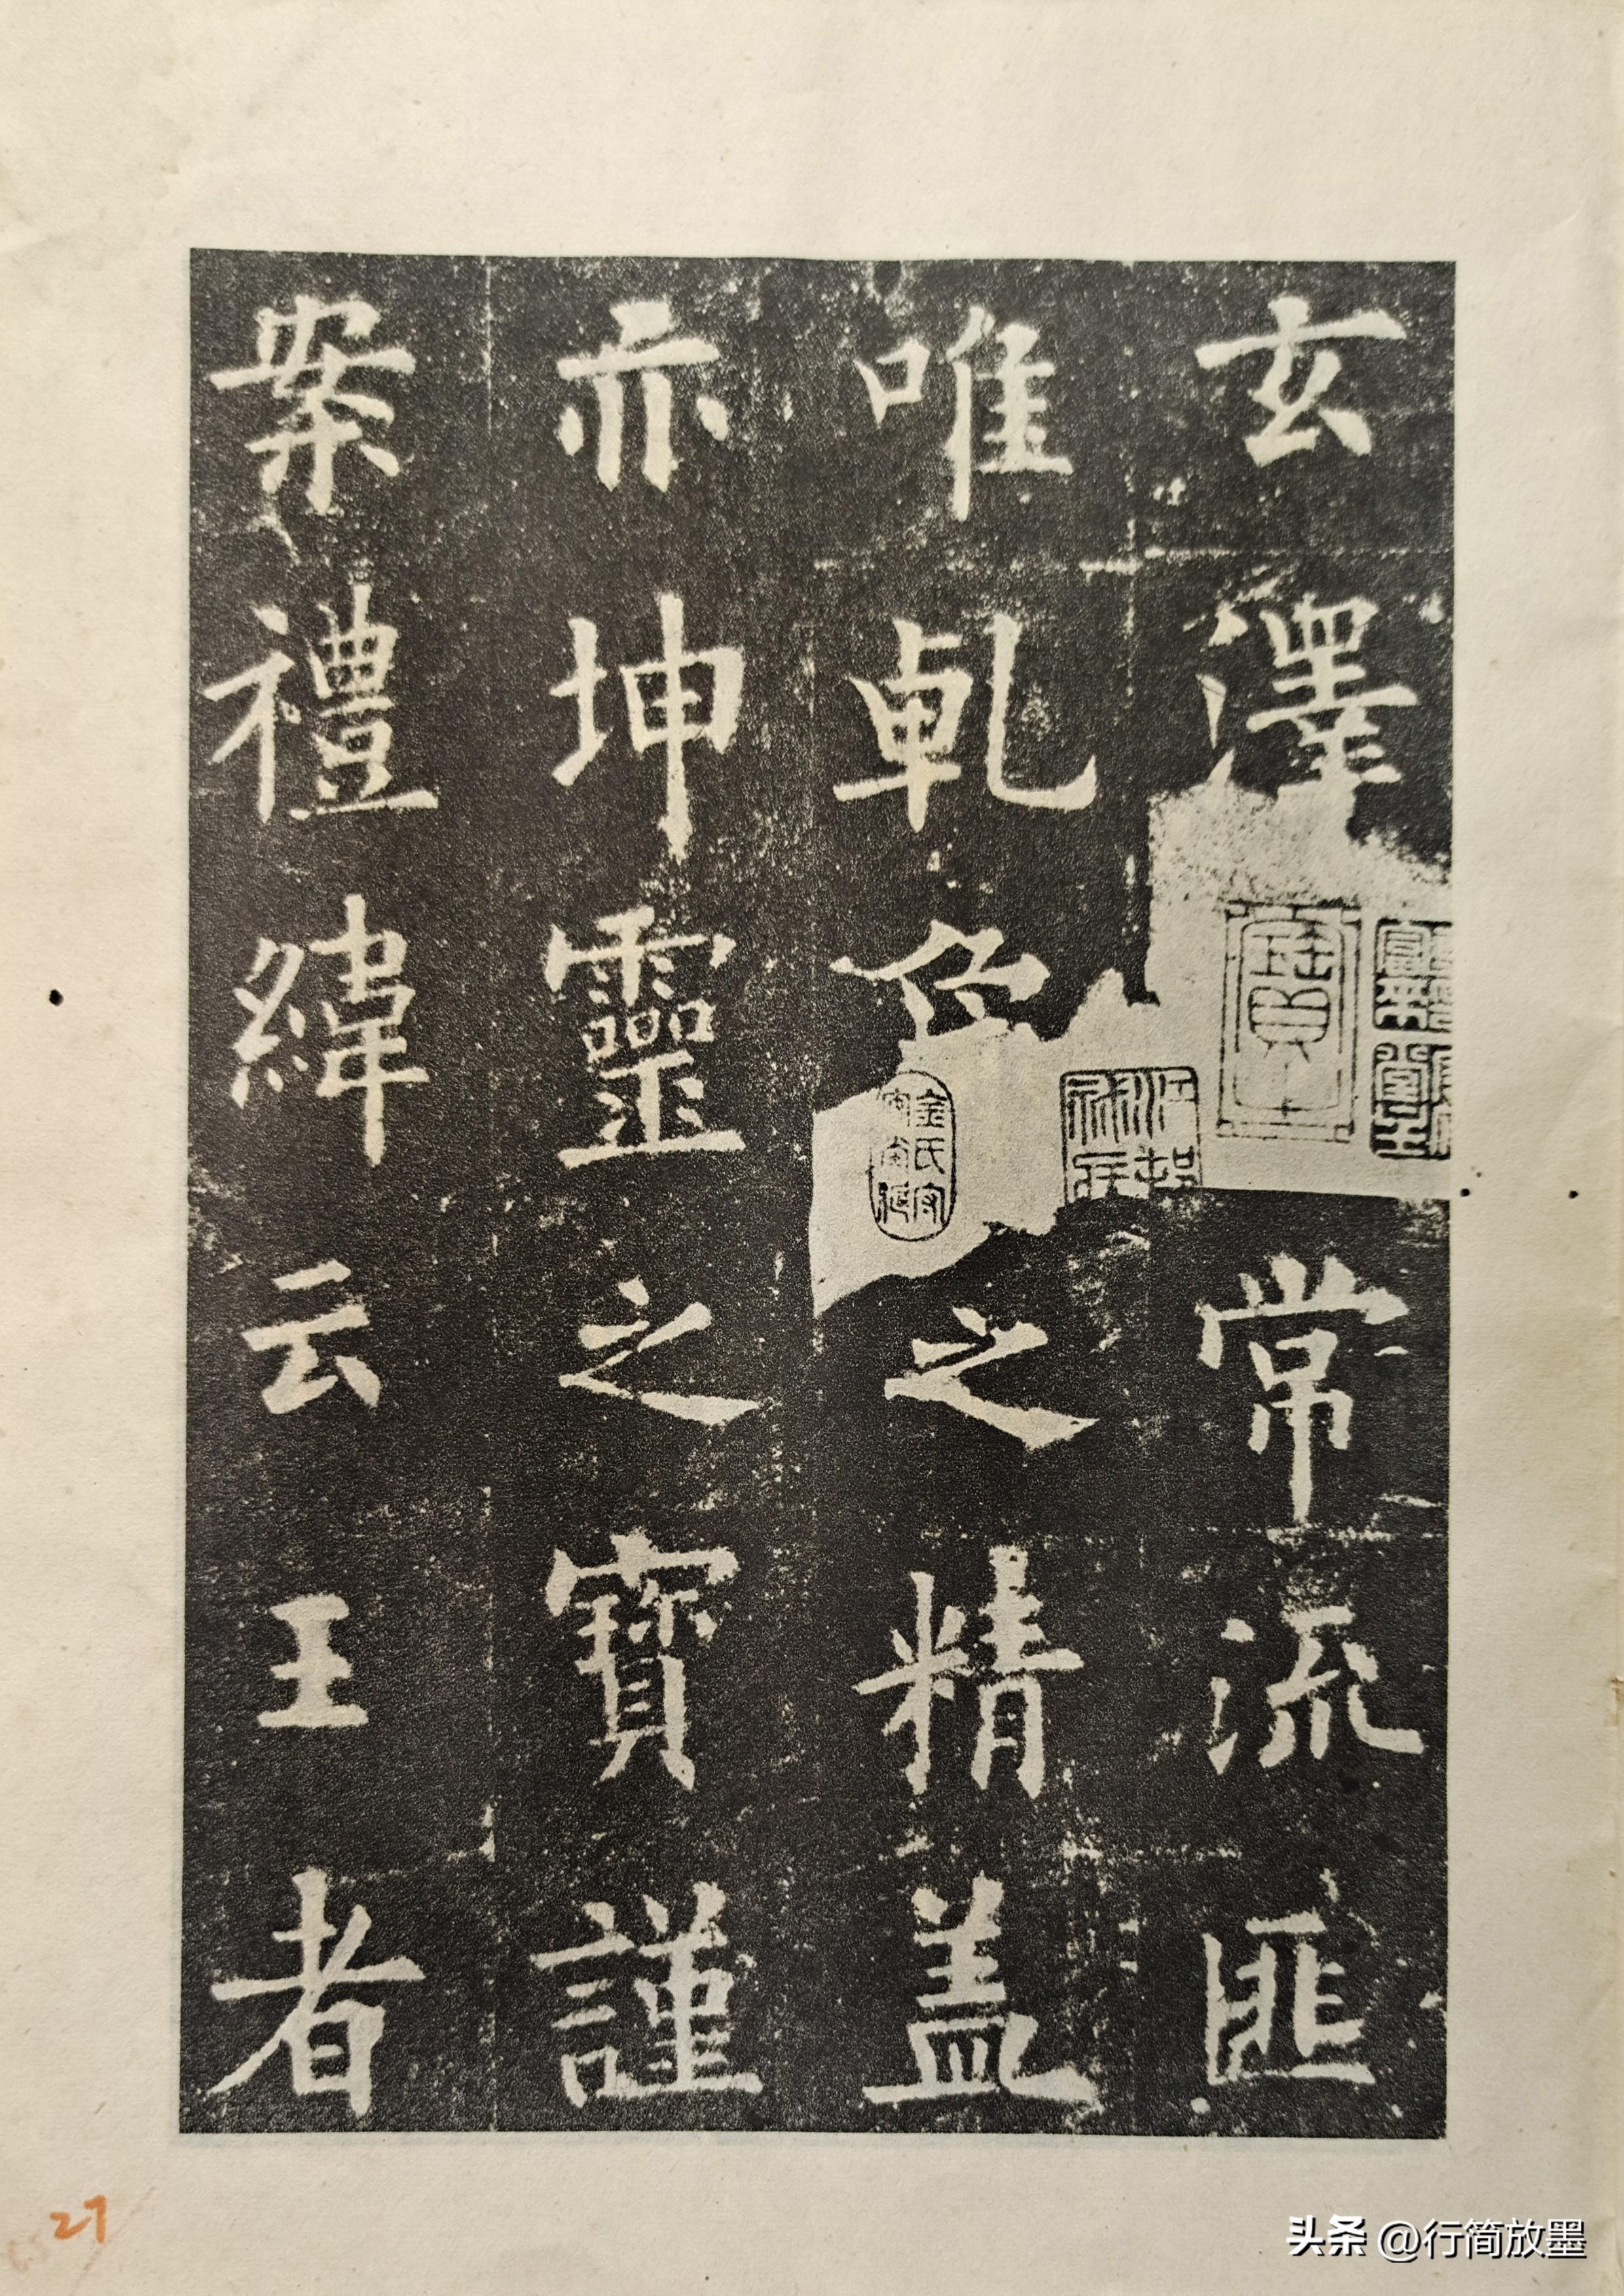 玄澤常流匪
唯乹之精盖
亦坤靈之寶謹
案禮緯云王者
金氏
27
头条 @行简放墨